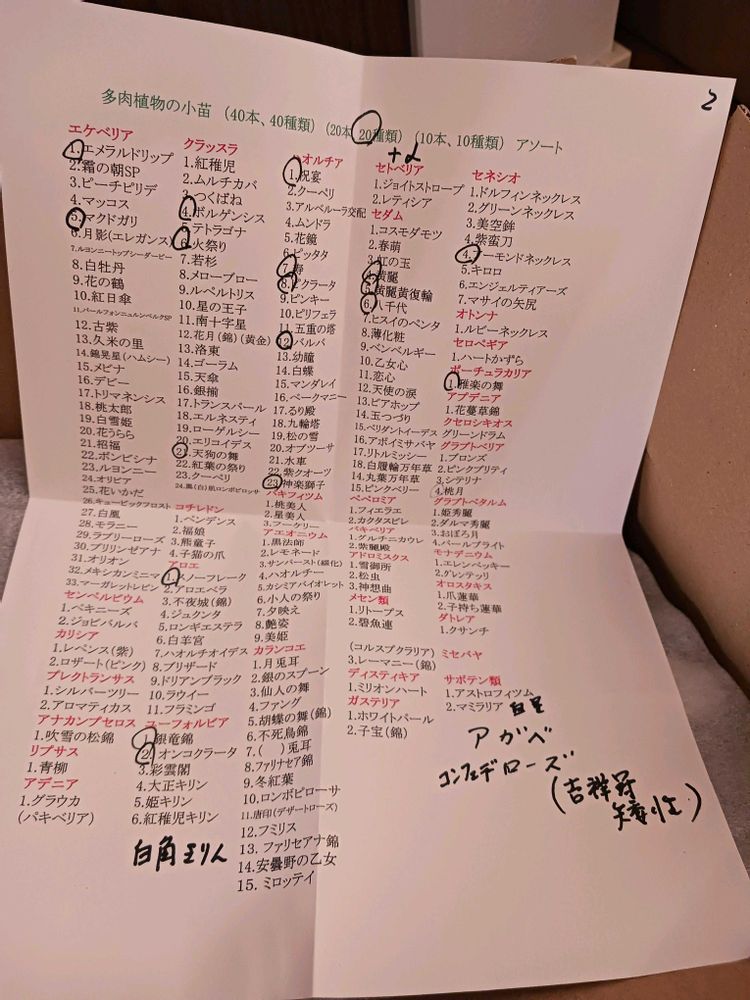 2
多肉植物の小苗 (40本、40種類) (20本、20種類) (10本、10種類) アソート
+α
エケベリア
1.エメラルドリップ
2.霜の朝SP
3.ピーチプリデ
4.マッコス
5.マクドガリ
6.月影(エレガンス)
7.ルヨンニートップシーダービー
8.白牡丹
9.花の鶴
10.紅日傘
11.パールフォンニュルンベルグSP
12.古紫
13.久米の里
14.錦晃星(ハムシー)
15.メビナ
16.デビー
17.トリマネンシス
18.桃太郎
19.白雪姫
20.花うらら
21.招福
22.ボンビシナ
23.ルヨンニー
24.オリビア
25.花いかだ
26.キュービックフロスト
27.白鳳
28.モラニー
29.ラブリーローズ
30.プリンゼアナ
31.オリオン
32.メキシカンミニマ
33.マーガレットレピン
センペルビウム
1.ペキニーズ
2.ジョビバルバ
カリシア
1.レペンス(紫)
2.ロザート(ピンク)
プレクトランサス
1.シルバーツリー
2.アロマティカス
アナカンプセロス
1.吹雪の松錦
リプサス
1.青柳
アデニア
1.グラウカ
(パキベリア)
クラッスラ
1.紅稚児
2.ムルチカバ
3.つくばね
4.ボルゲンシス
5.テトラゴナ
6.火祭り
7.若杉
8.メローブロー
9.ルペルトリス
10.星の王子
11.南十字星
12.花月(錦)(黄金)
13.洛東
14.ゴーラム
15.天傘
16.銀揃
17.トランスパール
18.エルネスティ
19.ローゲルシー
20.エリコイデス
21.天狗の舞
22.紅葉の祭り
23.クーペリ
24.黒(白)肌ロンボピロッサ
コチレドン
1.ペンデンス
2.福娘
3.熊童子
4.子猫の爪
アロエ
1.スノーフレーク
2.アロエベラ
3.不夜城(錦)
4.ジュクンダ
5.ロンギエステラ
6.白羊宮
7.ハオルチオイデス
8.ブリザード
9.ドリアンブラック
10.ラウイー
11.フラミンゴ
ユーフォルビア
1.銀竜錦
2.オンコクラータ
3.彩雲閣
4.大正キリン
5.姫キリン
6.紅稚児キリン
白角キりん
ハオルチア
1.祝宴
2.クーペリ
3.アルベルーラ交配
4.ムンドラ
5.花鏡
6.ピッタタ
7.寿
8.レアクラータ
9.ピンキー
10.ピリフェラ
11.五重の塔
12.バルバ
13.幼瞳
14.白蝶
15.マンダレイ
16.ベークマニー
17.るり殿
18.九輪塔
19.松の雪
20.オブツーサ
21.水車
22.紫クオーツ
23.神楽獅子
パキフィツム
1.桃美人
2.星美人
3.フーケリー
アエオニウム
1.黒法師
2.レモネード
3.サンバースト(綴化)
4.ハオルチー
5.カシミアバイオレット
6.小人の祭り
7.夕映え
8.艶姿
9.美姫
カランコエ
1.月兎耳
2.銀のスプーン
3.仙人の舞
4.ファング
5.胡蝶の舞(錦)
6.不死鳥錦
7.( )兎耳
8.ファリナセア錦
9.冬紅葉
10.ロンボピローサ
11.唐印(デザートローズ)
12.フミリス
13.ファリセアナ錦
14.安曇野の乙女
15.ミロッテイ
セトベリア
1.ジョイトストロープ
2.レティシア
セダム
1.コスモダモツ
2.春萌
3.虹の玉
4.黄麗
5.黄麗黄復輪
6.八千代
7.ヒスイのペンタ
8.薄化粧
9.ベンベルギー
10.乙女心
11.恋心
12.天使の涙
13.ビアホップ
14.玉つづり
15.ベリダントイーデス
16.アボイミサバヤ
17.リトルミッシー
18.白覆輪万年草
14.丸葉万年草
15.ピンクベリー
ペペロミア
1.フィエラエ
2.カクタスビレ
パキベリア
1.グルチニカウレ
2.紫麗殿
アドロミスクス
1.雪御所
2.松虫
3.神想曲
メセン類
1.リトープス
2.碧魚連
(コルスプクラリア)
3.レーマニー(錦)
ディスティキア
1.ミリオンハート
ガステリア
1.ホワイトパール
2.子宝(錦)
セネシオ
1.ドルフィンネックレス
2.グリーンネックレス
3.美空鉾
4.紫蛮刀
4.アーモンドネックレス
5.キロロ
6.エンジェルティアーズ
7.マサイの矢尻
オトンナ
1.ルビーネックレス
セロペギア
1.ハートかずら
ポーチュラカリア
1.雅楽の舞
アプデニア
1.花蔓草錦
クセロシキオス
グリーンドラム
グラプトベリア
1.ブロンズ
2.ピンクプリティ
3.シテリナ
4.桃月
グラプトペタルム
1.姫秀麗
2.ダルマ秀麗
3.おぼろ月
4.パールブライト
モナデニウム
1.エレンベッキー
2.グレンテッリ
オロスタキス
1.爪蓮華
2.子持ち蓮華
ダドレア
1.クサンチ
ミセバヤ
サボテン類
1.アストロフィツム
2.マミラリア 白星
アガベ
コンフェデローズ
(吉祥冠
矮性)